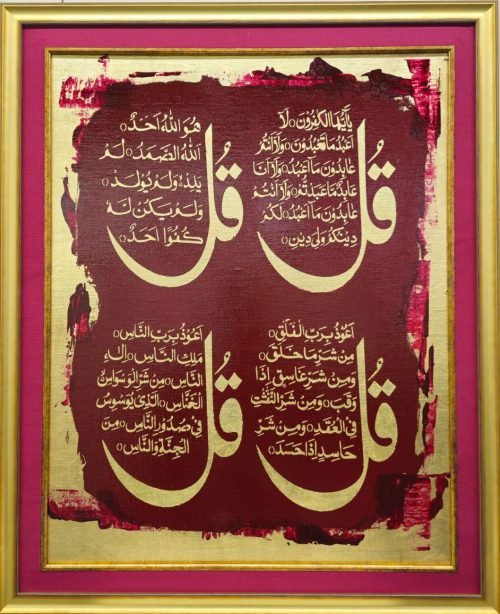 قُل
يٰٓاَيُّهَا الكٰفِرُونَ○ لَآ
اَعْبُدُ مَا تَعْبُدُونَ○ وَلَآ اَنْتُمْ
عَابِدُونَ مَا اَعْبُدُ○ وَلَآ اَنَا
عَابِدٌ مَا عَبَدْتُمْ○ وَلَآ اَنْتُمْ
عَابِدُونَ مَا اَعْبُدُ○ لَكُمْ
دِيْنُكُمْ وَلِيَ دِيْنِ○
قُل
هُوَ اللّٰهُ اَحَدٌ○
اَللّٰهُ الصَّمَدُ○ لَمْ
يَلِدْ○ وَلَمْ يُوْلَدْ○
وَلَمْ يَكُنْ لَهٗ
كُفُوًا اَحَدٌ○
قُل
اَعُوْذُ بِرَبِّ الْفَلَقِ○
مِنْ شَرِّ مَا خَلَقَ○
وَمِنْ شَرِّ غَاسِقٍ اِذَا
وَقَبَ○ وَمِنْ شَرِّ النَّفّٰثٰتِ
فِي الْعُقَدِ○ وَمِنْ شَرِّ
حَاسِدٍ اِذَا حَسَدَ○
قُل
اَعُوْذُ بِرَبِّ النَّاسِ○
مَلِكِ النَّاسِ○ اِلٰهِ
النَّاسِ○ مِنْ شَرِّ الْوَسْوَاسِ
الْخَنَّاسِ○ الَّذِيْ يُوَسْوِسُ
فِيْ صُدُوْرِ النَّاسِ○ مِنَ
الْجِنَّةِ وَالنَّاسِ○